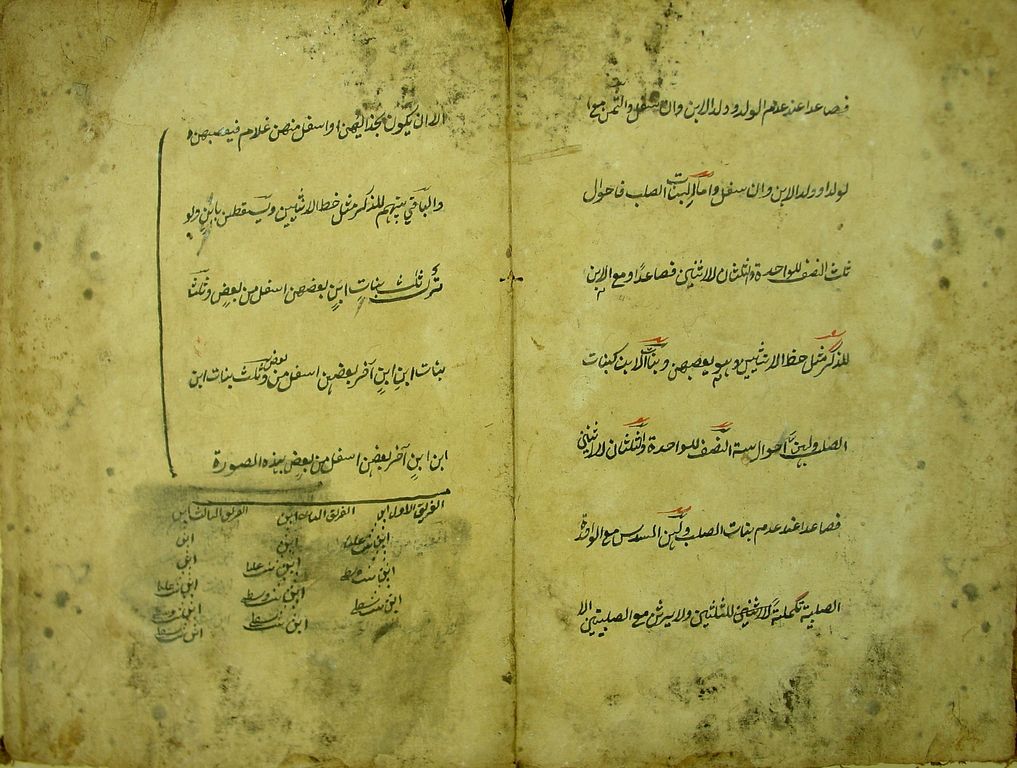 فصاعدا عند عدم الولد وولد الابن وان سفل والثمن مع ا
لولد او ولد الابن وان سفل واما لبنات الصلب فاحوال
ثلث النصف للواحدة والثلثان للاثنين فصاعدا ومع الابن
للذكر مثل حظ الانثيين وهو يعصبهن وبنات الابن كبنات
الصلب ولهن احوال ستة النصف للواحدة والثلثان للاثنتين
فصاعدا عند عدم بنات الصلب ولهن السدس مع الواحدة
الصلبية تكملة للثلثين ولا يرثن مع الصلبيتين الا
الا ان يكون بحذائهن او اسفل منهن غلام فيعصبهن
والباقي بينهم للذكر مثل حظ الانثيين ويسقطن بابن ولو
ترك ثلث بنات ابن بعضهن اسفل من بعض وثلث
بنات ابن ابن آخر بعضهن اسفل من بعض وثلث بنات ابن
ابن ابن آخر بعضهن اسفل من بعض بهذه الصورة
الفريق الاول ابن الفريق الثاني ابن الفريق الثالث ابن
ابن بنت عليا ابن ابن
ابن بنت وسطى ابن بنت عليا ابن
ابن بنت سفلى ابن بنت وسطى ابن بنت عليا
ابن بنت سفلى ابن بنت وسطى
ابن بنت سفلى